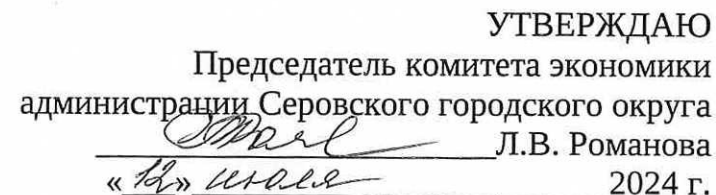 УТВЕРЖДАЮ
Председатель комитета экономики
администрации Серовского городского округа
Л.В. Романова
«12» июля 2024 г.